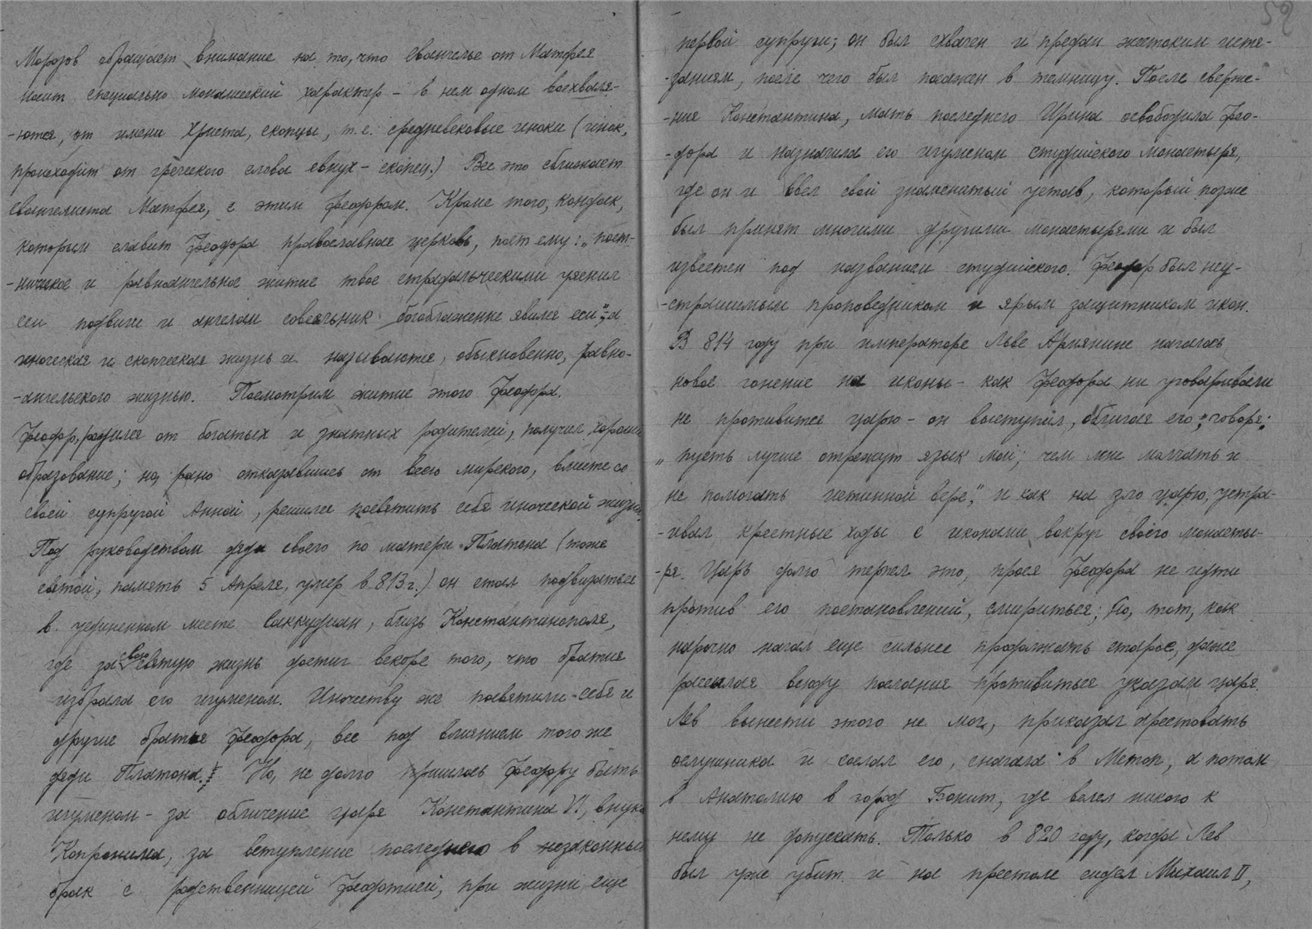 Морозов обращает внимание на то, что Евангелье от Матфея
носит специально монашеский характер – в нем одном восхваля-
-ются, от имени Христа, скопцы, т.е. средневековые иноки (инок,
происходит от греческого слова евнух – скопец.) Все это сближает
евангелиста Матфея, с этим Феодором. Кроме того, кондак,
которым славит Феодора православная церковь, поет ему: „пост-
-ническое и равноангельное житие твое страдальческими уяснил
еси подвиги и ангелам совсельник богоблаженне явился еси“; а
иноческая и скопческая жизнь и называются, обыкновенно, равно-
-ангельского жизнью. Посмотрим житие этого Феодора.
Феодор, родился от богатых и знатных родителей, получил хорошее
образование; но, рано отказавшись от всего мирского, вместе со
своей супругой Анной, решился посвятить себя иноческой жизни.
Под руководством дяди своего по матери Платона (тоже
святой, память 5 Апреля, умер в 813 г.) он стал подвизаться
в уединенном месте Саккудион, близь Константинополя,
где за свою святую жизнь достиг вскоре того, что братия
избрала его игуменом. Иночеству же посвятили себя и
другие братья Феодора, все под влиянием того же
дяди Платона. Но, не долго пришлось Феодору быть
игуменом – за обличение царя Константина VI, внука
Копронима, за вступление последнего в незаконный
брак с родственницей Феодотией, при жизни еще
59
первой супруги; он был схвачен и предан жестоким истя-
-заниям, после чего был посажен в темницу. После сверже-
-ние Константина, мать последнего Ирина освободила Фео-
-дора и назначила его игуменом студийского монастыря,
где он и ввел свой знаменитый устав, который позже
был принят многими другими монастырями и был
известен под названием студийского. Феодор был неу-
-страшимым проповедником и ярым защитником икон.
В 814 году при императоре Льве Армянине началось
новое гонение на иконы – как Феодора ни уговаривали
не противится царю – он выступил, обличая его; говоря:
„пусть лучше отрежут язык мой; чем мне молчать и
не помогать истинной вере“, и как на зло царю, устра-
-ивал крестные ходы с иконами вокруг своего монасты-
-ря. Царь долго терпел это, прося Феодора не идти
против его постановлений, смириться; но, тот, как
нарочно начал еще сильнее продолжать старое, даже
рассылая всюду послания противиться указам царя.
Лев вынести этого не мог, приказал арестовать
ослушника и сослал его, сначала в Метоп, а потом
в Анатолию в город Бонит, где велел никого к
нему не допускать. Только в 820 году, когда Лев
был уже убит и на престоле сидел Михаил II,